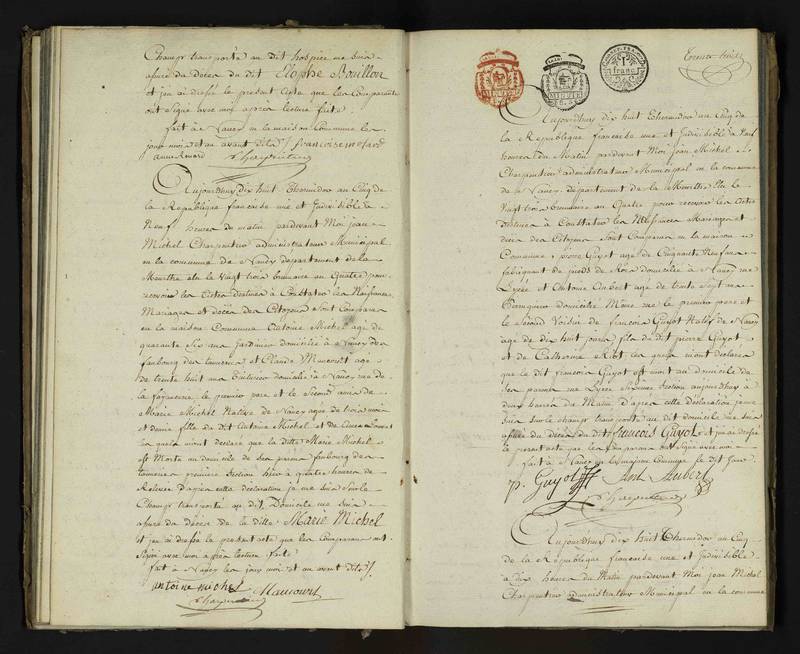 Champ transporté au dit hospice me suis
assuré du Décès du dit Elophe Bouillon
et j'ai dressé le présent acte que les Comparants
ont signé avec moi après lecture faite
fait à Nancy en la maison Commune les
jour mois et an avant dits
Charpentier
Aujourdhuy dix huit thermidor an Cinq de
la République française une et Indivisible à
Neuf heures du matin pardevant Moi jean
Michel Charpentier administrateur Municipal
en la commune de Nancy département de la
Meurthe élu le vingt trois brumaire an Quatre pour
recevoir les Actes destinés à Constater les Naissances
Mariages et décès des Citoyens Sont Comparus
en la maison Commune Antoine Michel agé de
quarante Six ans jardinier domicilié à Nancy
faubourg des tanneries et Claude agé
de trente huit ans domicilié à Nancy rue de
la fayancerie le premier pere et le Second ami de
Marie Michel Native de Nancy agée de trois mois
et demie fille du dit Antoine Michel et de
les quels m'ont déclaré que la ditte Marie Michel
est Morte au domicile de son faubourg des
tanneries premiere Section hier à quatre heures de
Relevée d'après cette déclaration je me suis Sur le
Champ transporté au dit Domicile me suis
assuré du décès de la ditte Marie Michel
et j'ai dressé le présent acte que les Comparants ont
Signé avec moi après lecture faite
fait à Nancy les jour moi et an avant dits
antoine michel Maucourt
Charpentier
1 franc
Trente huit
Aujourdhuy dix huit thermidor an Cinq de
la République française une et Indivisible à Neuf
heures du Matin pardevant Moi jean Michel
Charpentier administrateur Municipal en la commune
de Nancy Département de la Meurthe élu le
Vingt trois brumaire an Quatre pour recevoir les Actes
destinés à Constater les Naissances Mariages et
décès des Citoyens Sont Comparus en la maison
Commune pierre Guyot agé de Cinquante Neuf ans
fabriquant de domicilié à Nancy rue
Lycée et Antoine Aubert agé de trente Sept ans
Perruquier domicilié Même rue le premier pere et
le Second Voisin de francois Guyot Natif de Nancy
agé de dix huit jours fils du dit pierre Guyot
et de Catherine les quels m'ont déclaré
que le dit francois Guyot est mort au domicile de
ses parents rue Lycée Section aujourdhuy à
deux heures du Matin d'après cette déclaration je me
suis sur le champ transporté au dit domicile me suis
assuré du décès du dit francois Guyot et j'ai dressé
le présent acte que les Comparants ont signé avec moi
fait à Nancy en la maison Commune le dit jour
p. Guyot Ant Aubert
Charpentier
Aujourdhuy dix huit thermidor an Cinq
de la République française une et Indivisible
à dix heures du Matin pardevant Moi jean Michel
Charpentier administrateur Municipal en la commune